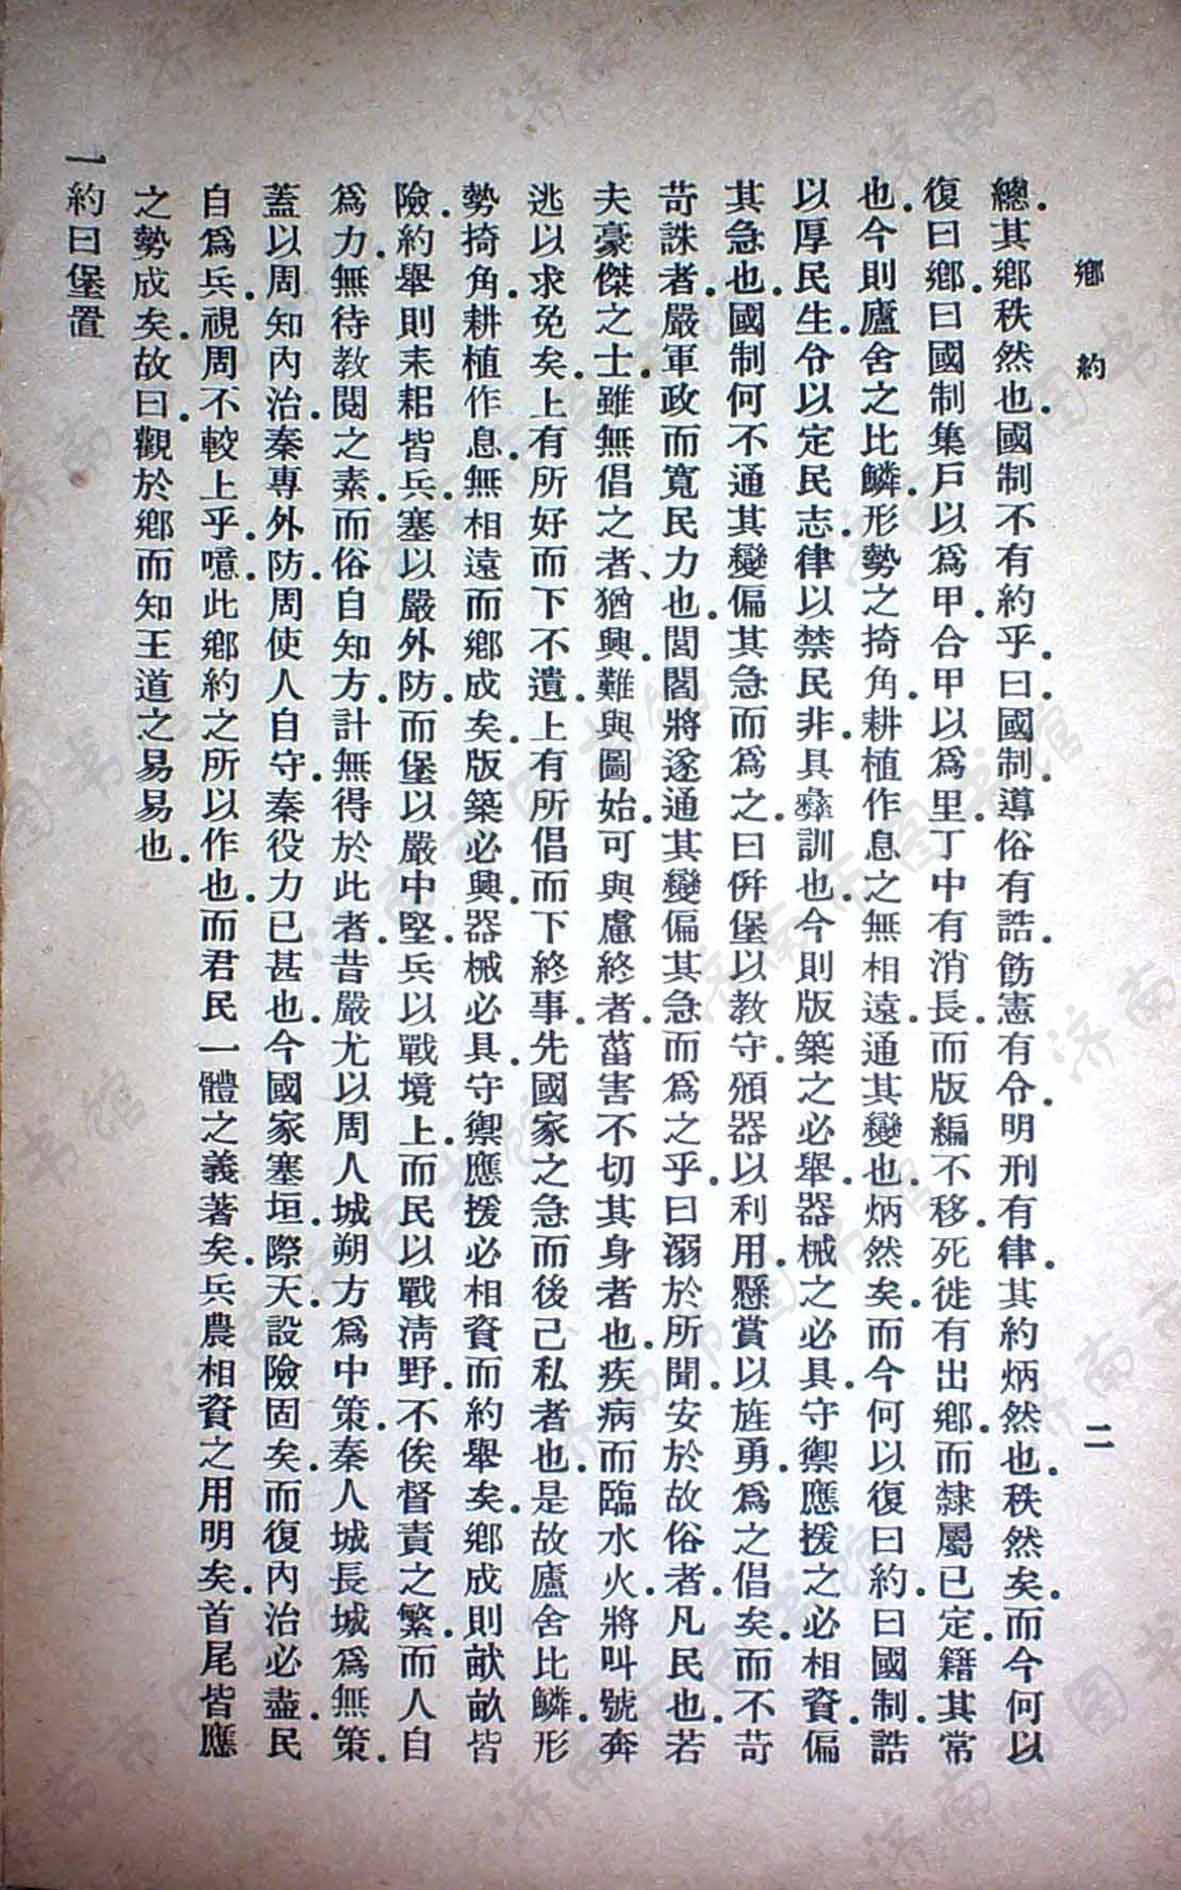 鄉約　二
總．其鄉秩然也．國制不有約乎．曰國制．導俗有誥．飭憲有令．明刑有律．其約炳然也．秩然矣．而今何以
復曰鄉．曰國制集戶以爲甲．合甲以爲里．丁中有消長．而版編不移．死徙有出鄉．而隸屬已定．籍其常
也．今則廬舍之比鱗．形勢之掎角．耕植作息之無相遠．通其變也．炳然矣．而今何以復曰約．曰國制．誥
以厚民生．令以定民志．律以禁民非．具彝訓也．今則版築之必舉．器械之必具．守禦應援之必相資．偏
其急也．國制何不通其變偏其急而爲之．曰併堡以教守．頒器以利用．懸賞以旌勇．爲之倡矣．而不苛
苛誅者．嚴軍政而寬民力也．閭閻將遂通其變偏其急而爲之乎．曰溺於所聞．安於故俗者．凡民也．若
夫豪傑之士．雖無倡之者、猶興．難與圖始．可與慮終者．葘害不切其身者也．疾病而臨水火．將叫號奔
逃以求免矣．上有所好而下不遺．上有所倡而下終事．先國家之急而後己私者也．是故廬舍比鱗．形
勢掎角．耕植作息．無相遠而鄉成矣．版築必興．器械必具．守禦應援必相資而約舉矣．鄉成則畎畝皆
險．約舉則耒耜皆兵．塞以嚴外防．而堡以嚴中堅．兵以戰境上．而民以戰淸野．不俟督責之繁．而人自
爲力．無待教閱之素．而俗自知方．計無得於此者．昔嚴尤以周人城朔方爲中策．秦人城長城爲無策．
蓋以周知內治．秦專外防．周使人自守．秦役力已甚也．今國家塞垣．際天．設險固矣．而復內治必盡．民
自爲兵．視周不較上乎．噫．此鄉約之所以作也．而君民一體之義著矣．兵農相資之用明矣．首尾皆應
之勢成矣．故曰．觀於鄉而知王道之易易也．
一約曰堡置
济南市图书馆